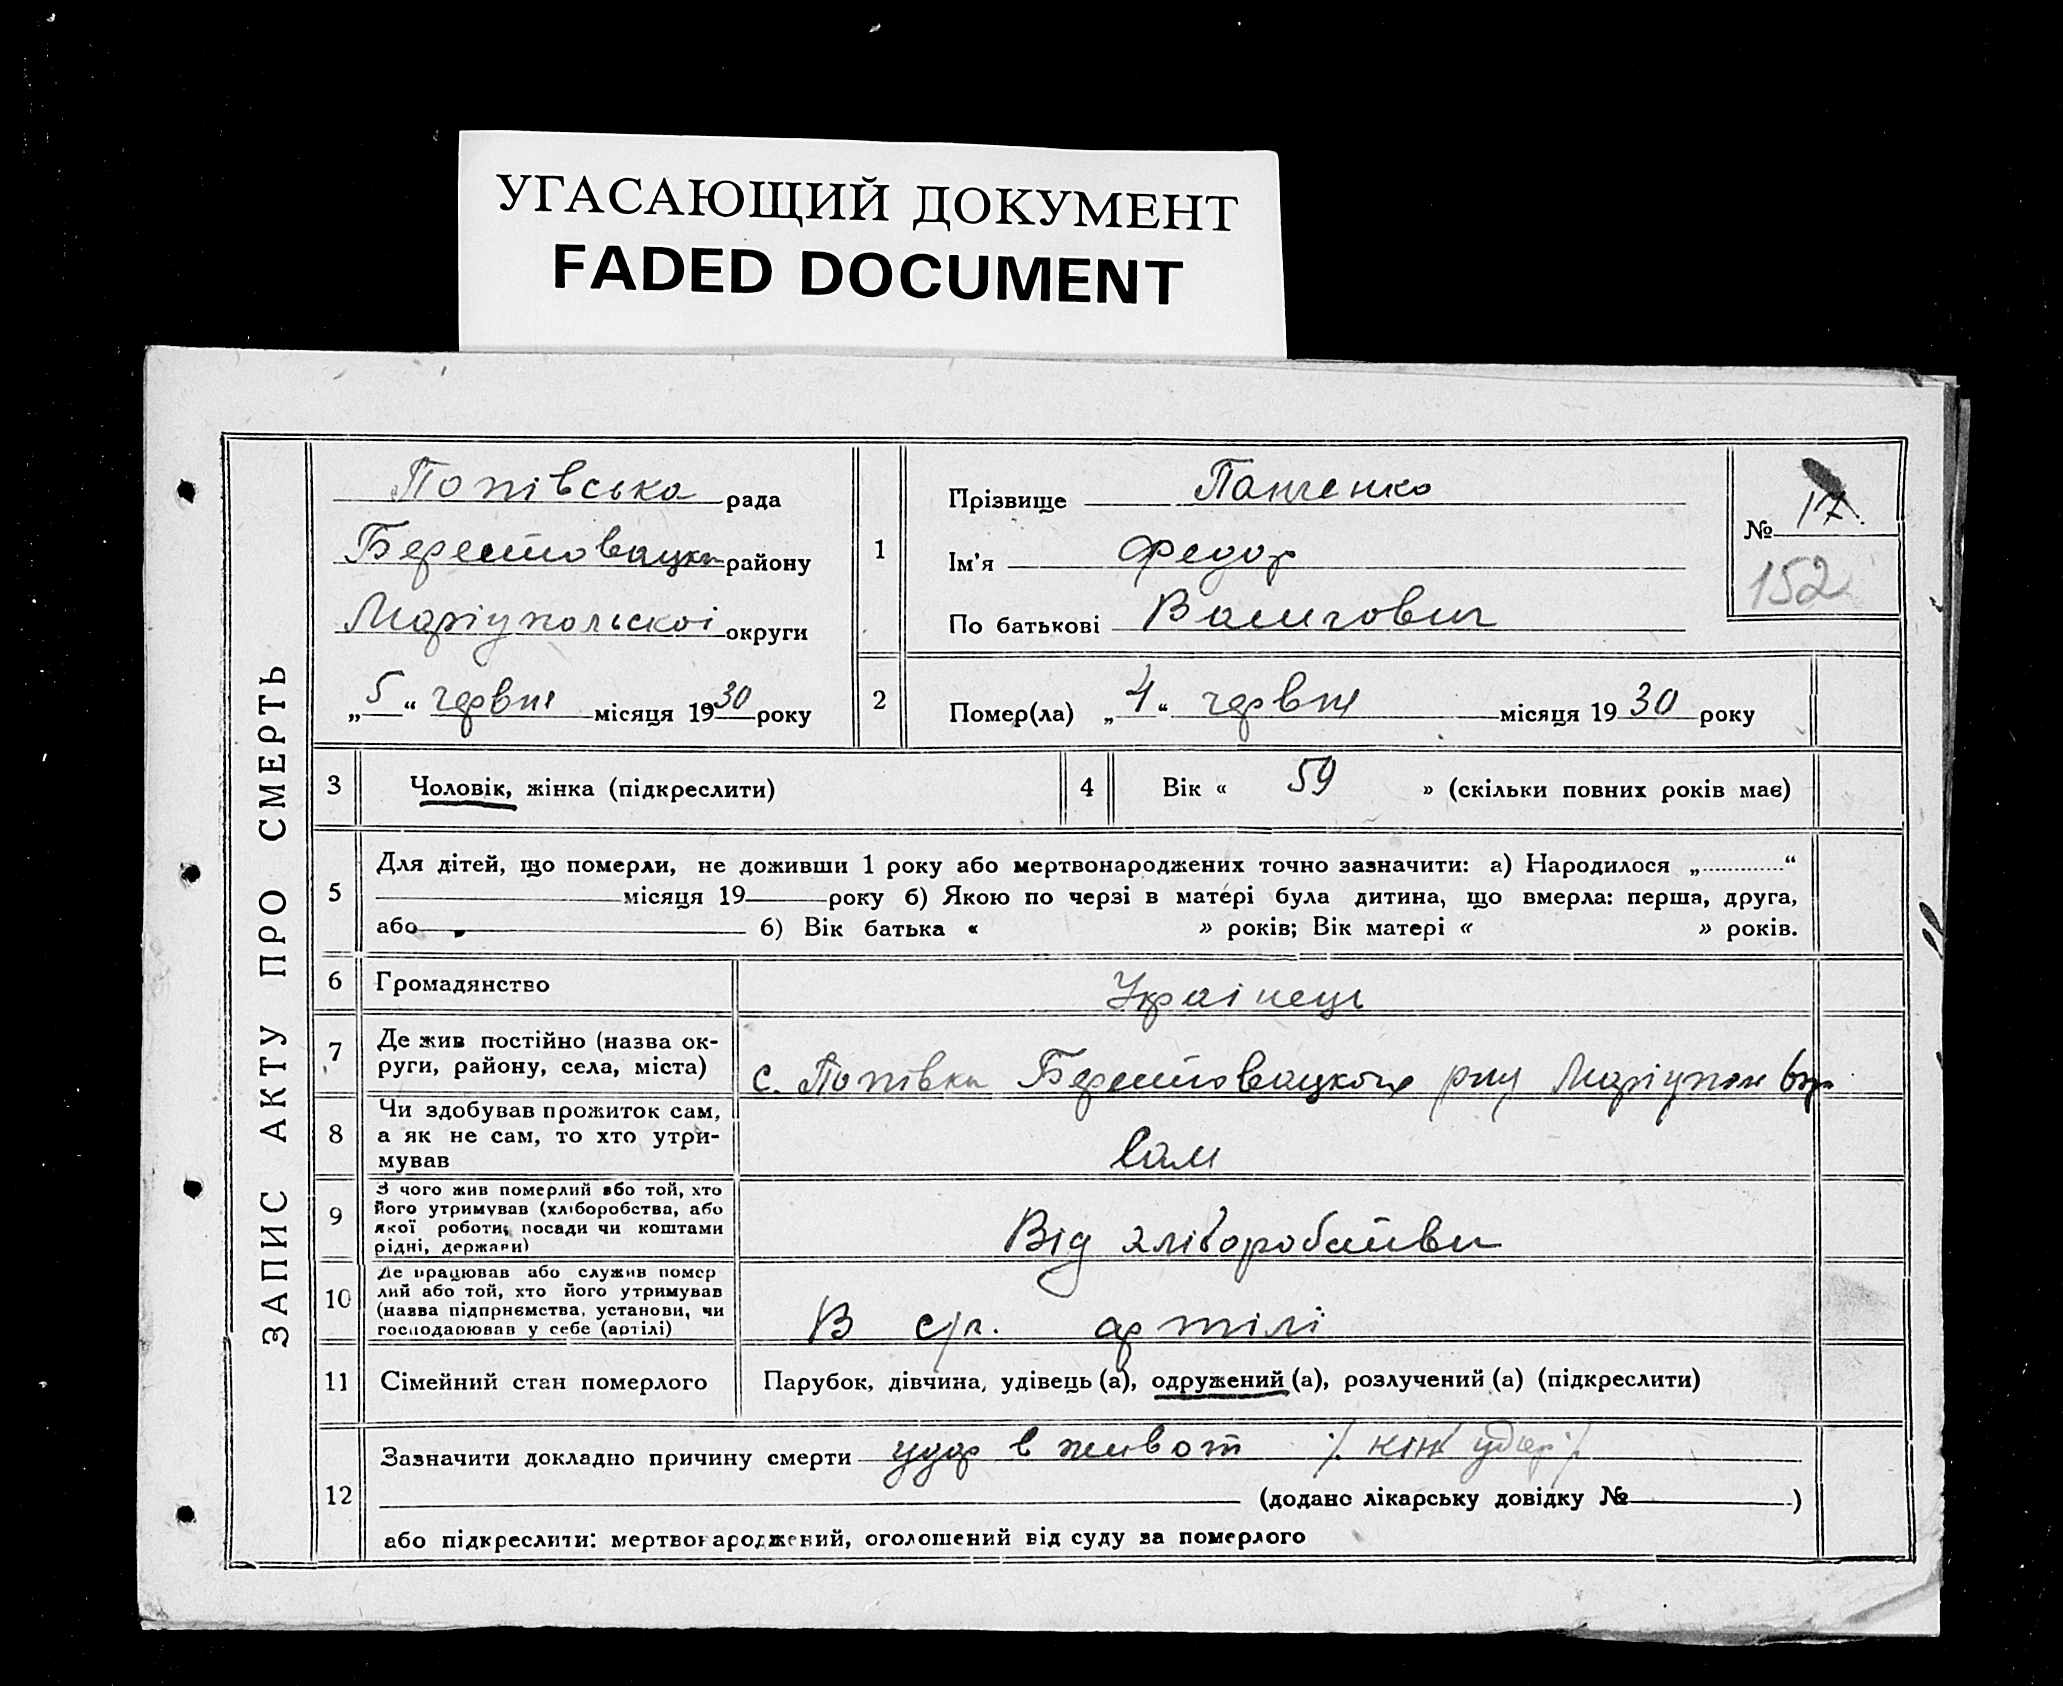 УГАСАЮЩИЙ ДОКУМЕНТ
FADED DOCUMENT
ЗАПИС АКТУ ПРО СМЕРТЬ
Попівська рада
району
Маріупольскої округи
„5“ червня місяця 1930 року
1
Прізвище Панченко
Ім'я Федор
По батькові
№ 17.
152
2
Помер(ла) „4“ червня місяця 1930 року
3
Чоловік, жінка (підкреслити)
4
Вік « 59 » (скільки повних років має)
5
Для дітей, що померли, не доживши 1 року або мертвонароджених точно зазначити: а) Народилося „ “
місяця 19 року б) Якою по черзі в матері була дитина, що вмерла: перша, друга,
або б) Вік батька « » років; Вік матері « » років.
6
Громадянство
Українець
7
Де жив постійно (назва ок-
руги, району, села, міста)
с. Попівка
8
Чи здобував прожиток сам,
а як не сам, то хто утри-
мував
Сам
9
З чого жив померлий або той, хто
його утримував (хліборобства, або
якої роботи, посади чи коштами
рідні, держави)
Від
10
Де працював або служив помер
лий або той, хто його утримував
(назва підприємства, установи, чи
господарював у себе (артілі)
В с/г. артілі
11
Сімейний стан померлого
Парубок, дівчина, удівець (а), одружений (а), розлучений (а) (підкреслити)
12
Зазначити докладно причину смерти удар в живот
(додано лікарську довідку № )
або підкреслити: мертвонароджений, оголошений від суду за померлого